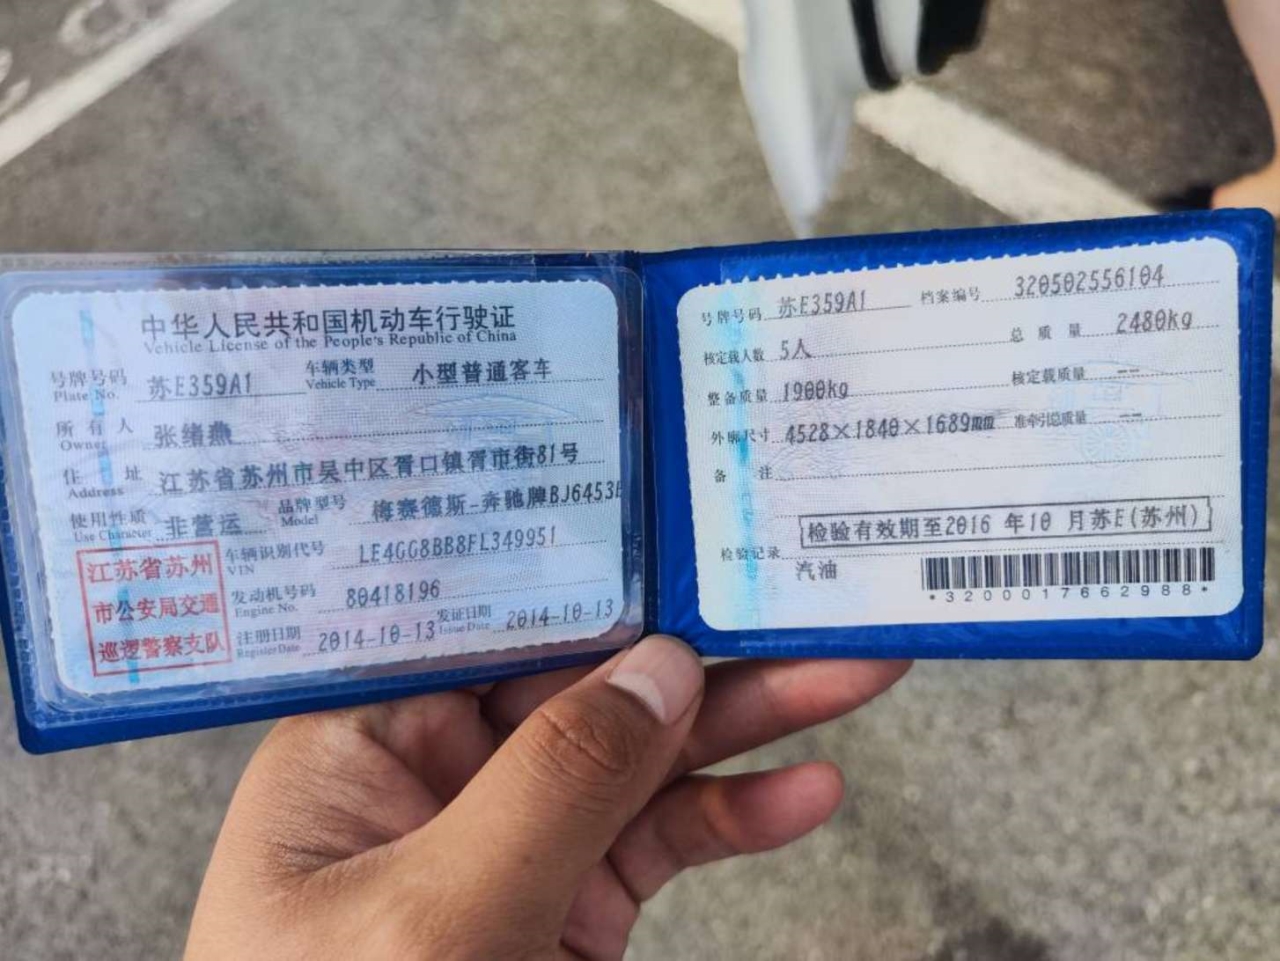 中华人民共和国机动车行驶证
Vehicle License of the People's Republic of China
号牌号码 苏E359A1 车辆类型 小型普通客车
Plate No. Vehicle Type
所有人 张绪燕
Owner
住址 江苏省苏州市吴中区胥口镇胥市街81号
Address
使用性质 非营运 品牌型号 梅赛德斯-奔驰牌BJ6453
Use Character Model
江苏省苏州
市公安局交通
巡逻警察支队
车辆识别代号 LE4GG8BB8FL349951
VIN
发动机号码 80418196
Engine No.
注册日期 2014-10-13 发证日期 2014-10-13
Register Date Issue Date
号牌号码 苏E359A1 档案编号 320502556104
核定载人数 5人 总质量 2480kg
整备质量 1900kg 核定载质量 --
外廓尺寸 4528×1840×1689mm 准牵引总质量 --
备注
检验有效期至2016 年10 月苏E(苏州)
检验记录
汽油
*3200017662988*